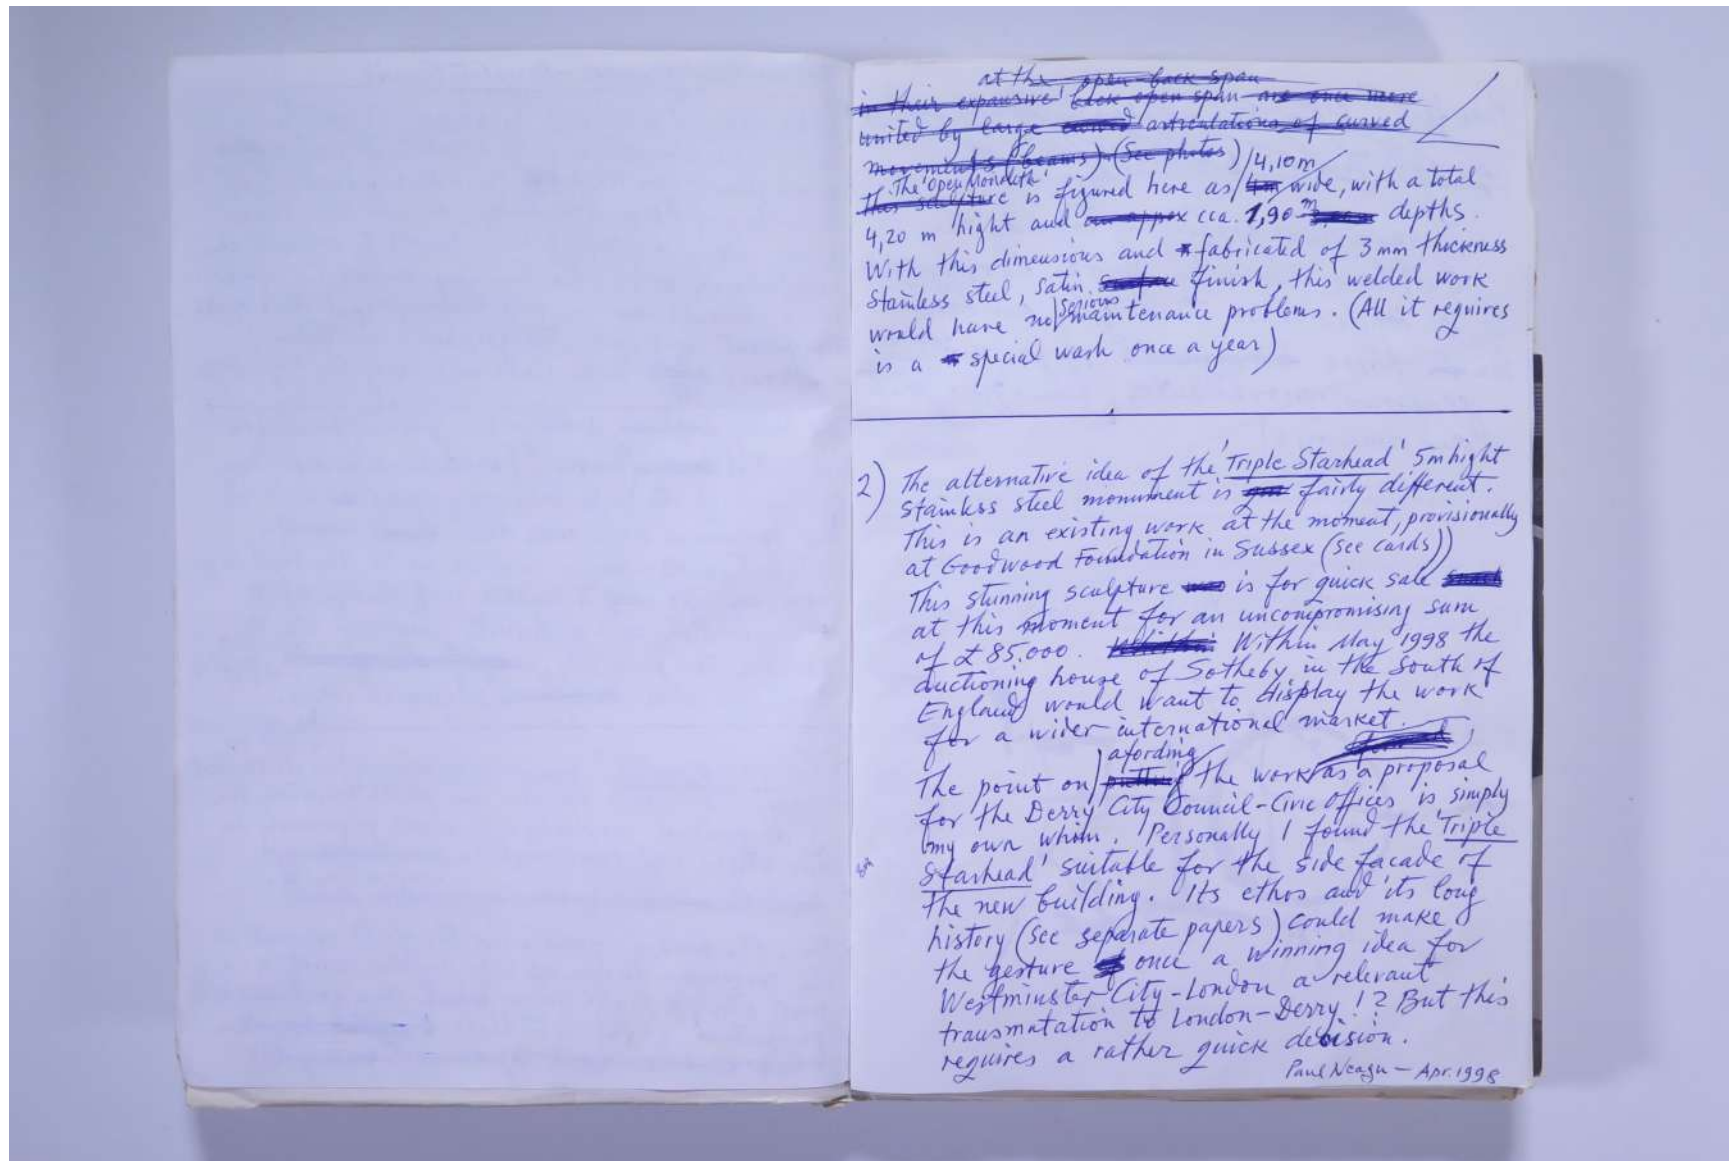 at the open back span
in their expansive back open span are once more
united by large curved articulations of curved
movements (beams). (See photos) 4,10m
The 'Open Monolith'
This sculpture is figured here as 4m wide, with a total
4,20 m hight and an appox cca. 1,90 m depths.
With this dimensions and fabricated of 3 mm thickness
Stainless steel, satin surface finish, this welded work
serious
would have no maintenance problems. (All it requires
is a special wash once a year)
2) The alternative idea of the 'Triple Starhead' 5m hight
Stainless steel monument is fairly different.
This is an existing work at the moment, provisionally
at Goodwood Foundation in Sussex (see cards))
This stunning sculpture was is for quick sale
at this moment for an uncompromising sum
of £85.000. Whithin Within May 1998 the
auctioning house of Sotheby in the South of
England would want to display the work
for a wider international market.
afording
The point on putting the work as a proposal
for the Derry City Council-Civic Offices is simply
my own whim. Personally I found the 'Triple
Starhead' suitable for the side facade of
the new building. Its ethos and its long
history (see separate papers) could make
the gesture once a winning idea for
Westminster City-London a relevant
transmutation to London-Derry!? But this
requires a rather quick decision.
Paul Neagu - Apr. 1998